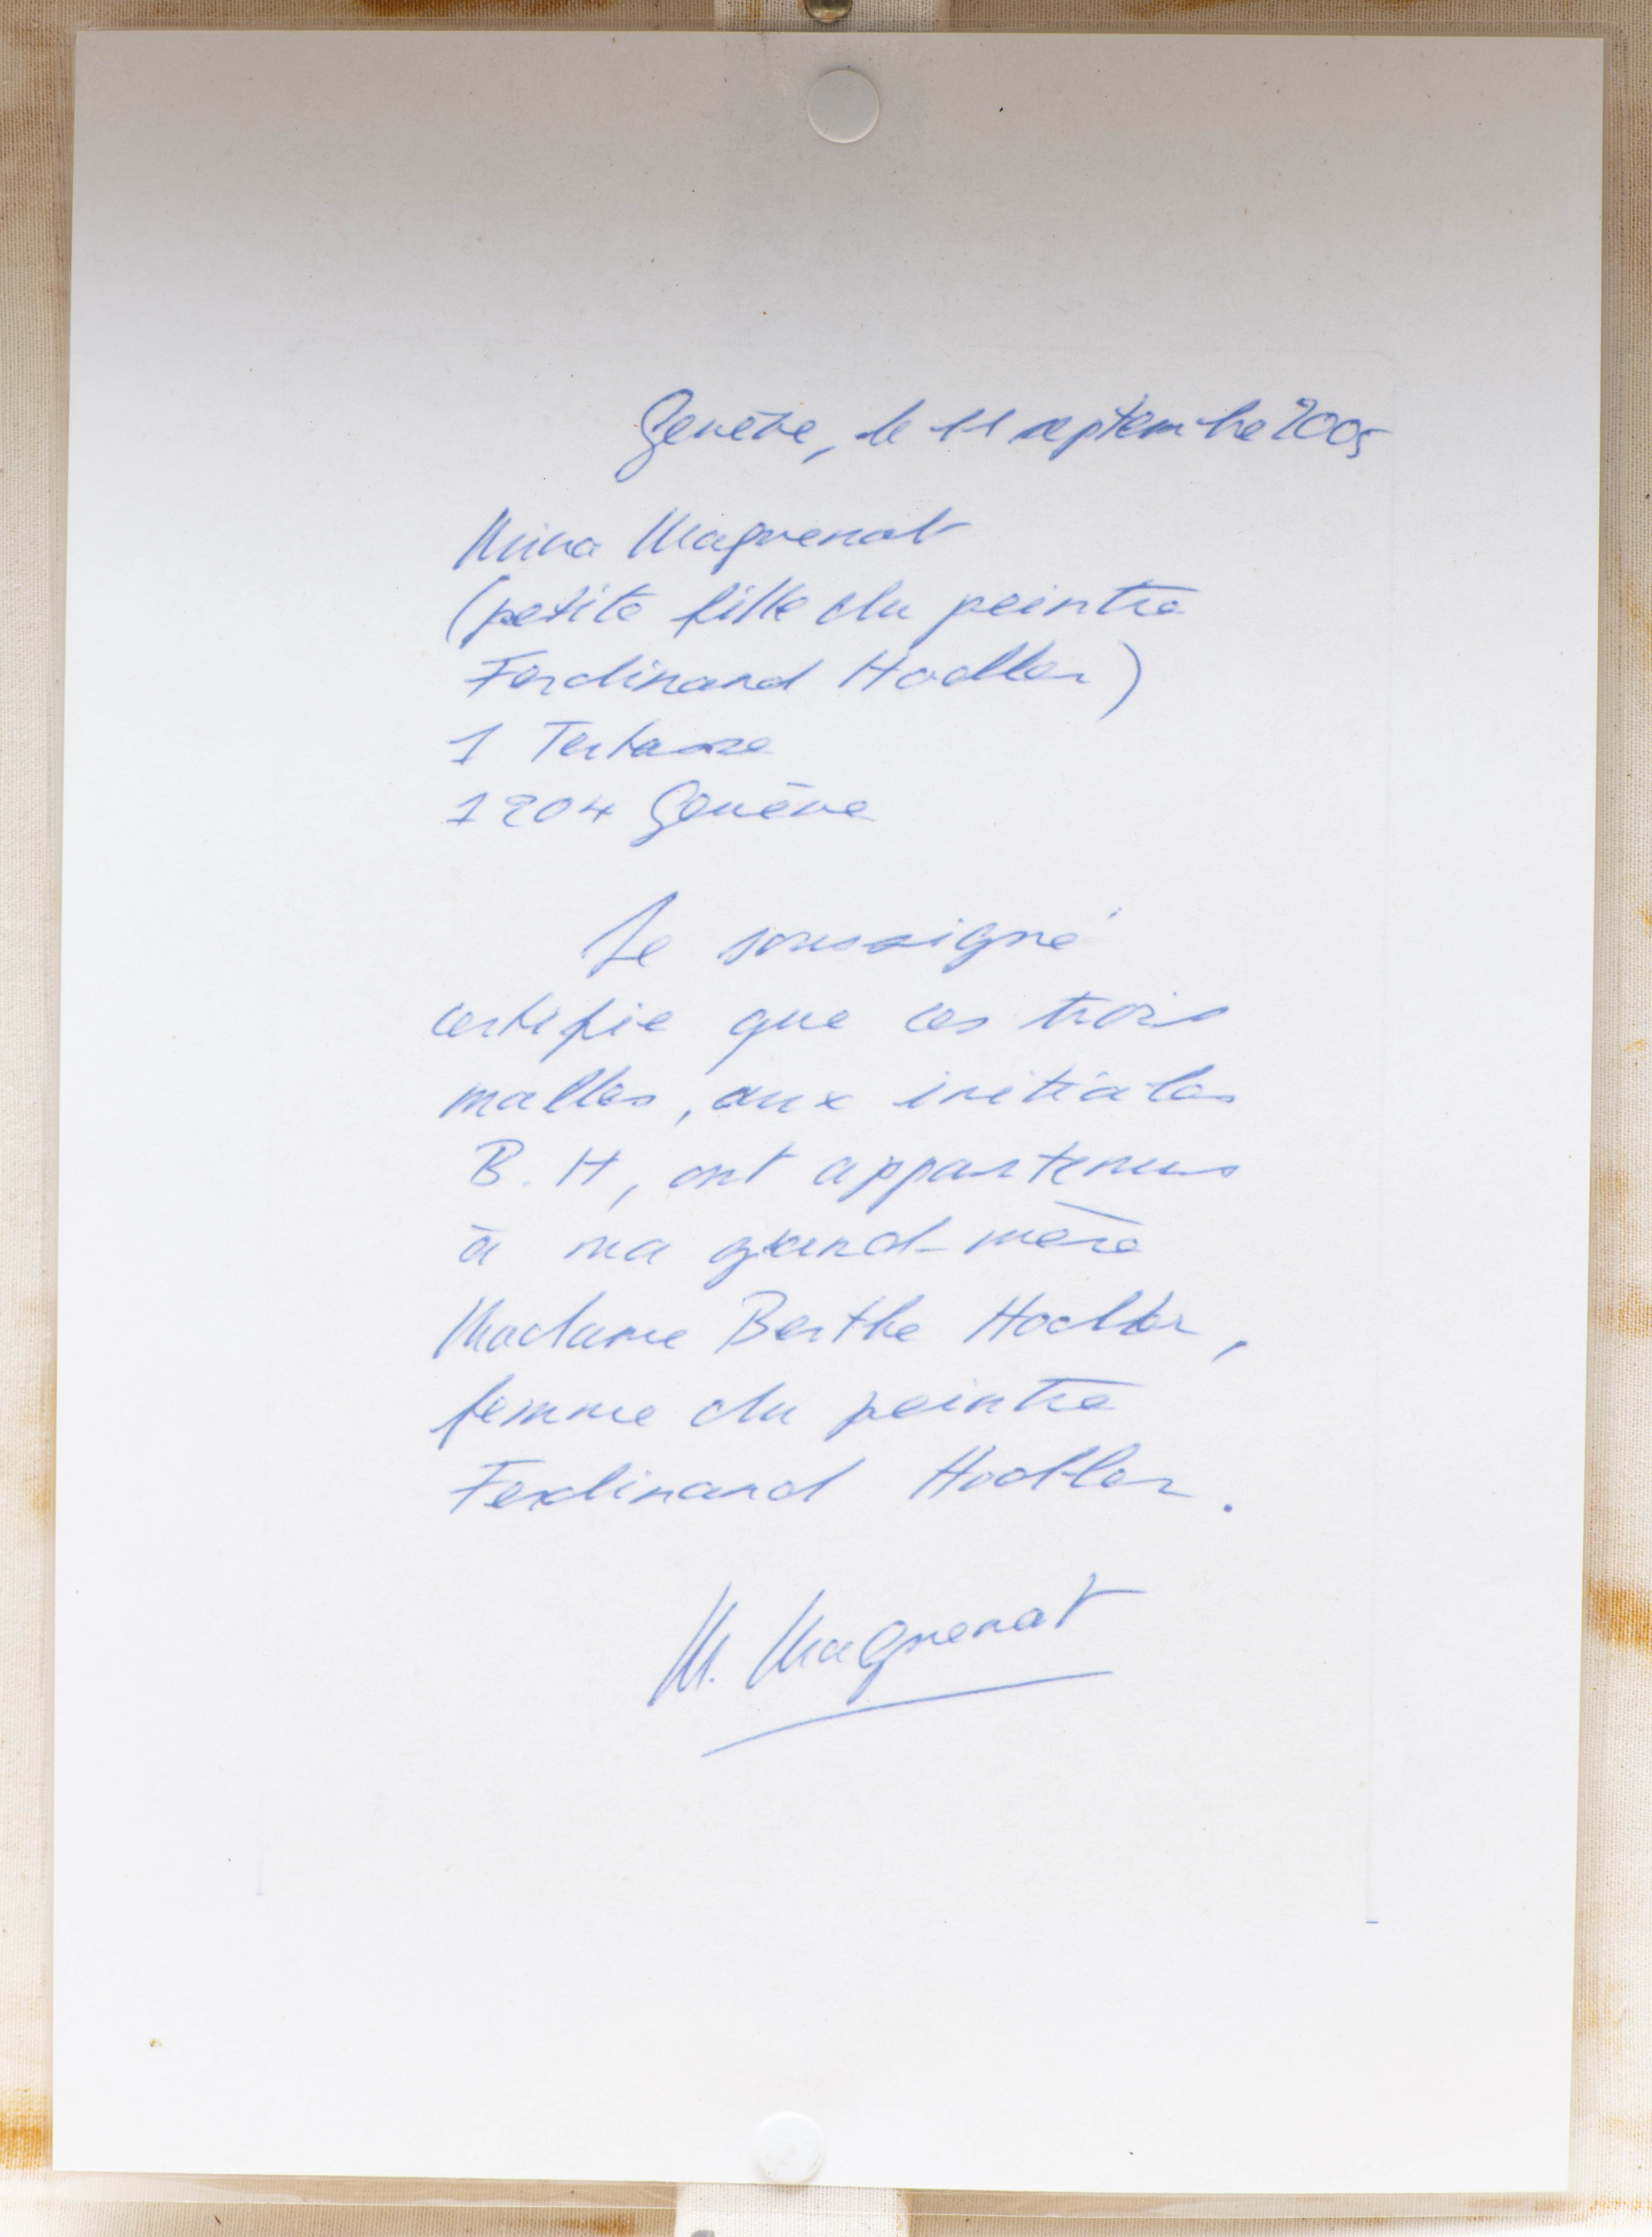 Genève, le 11 septembre 2005
Mina Magnenat
(petite fille du peintre
Ferdinand Hodler)
1 Tertasse
1204 Genève
Je soussigné
certifie que ces trois
malles, aux initiales
B. H, ont appartenus
à ma grand-mère
Madame Berthe Hodler,
femme du peintre
Ferdinand Hodler.
M. Magnenat